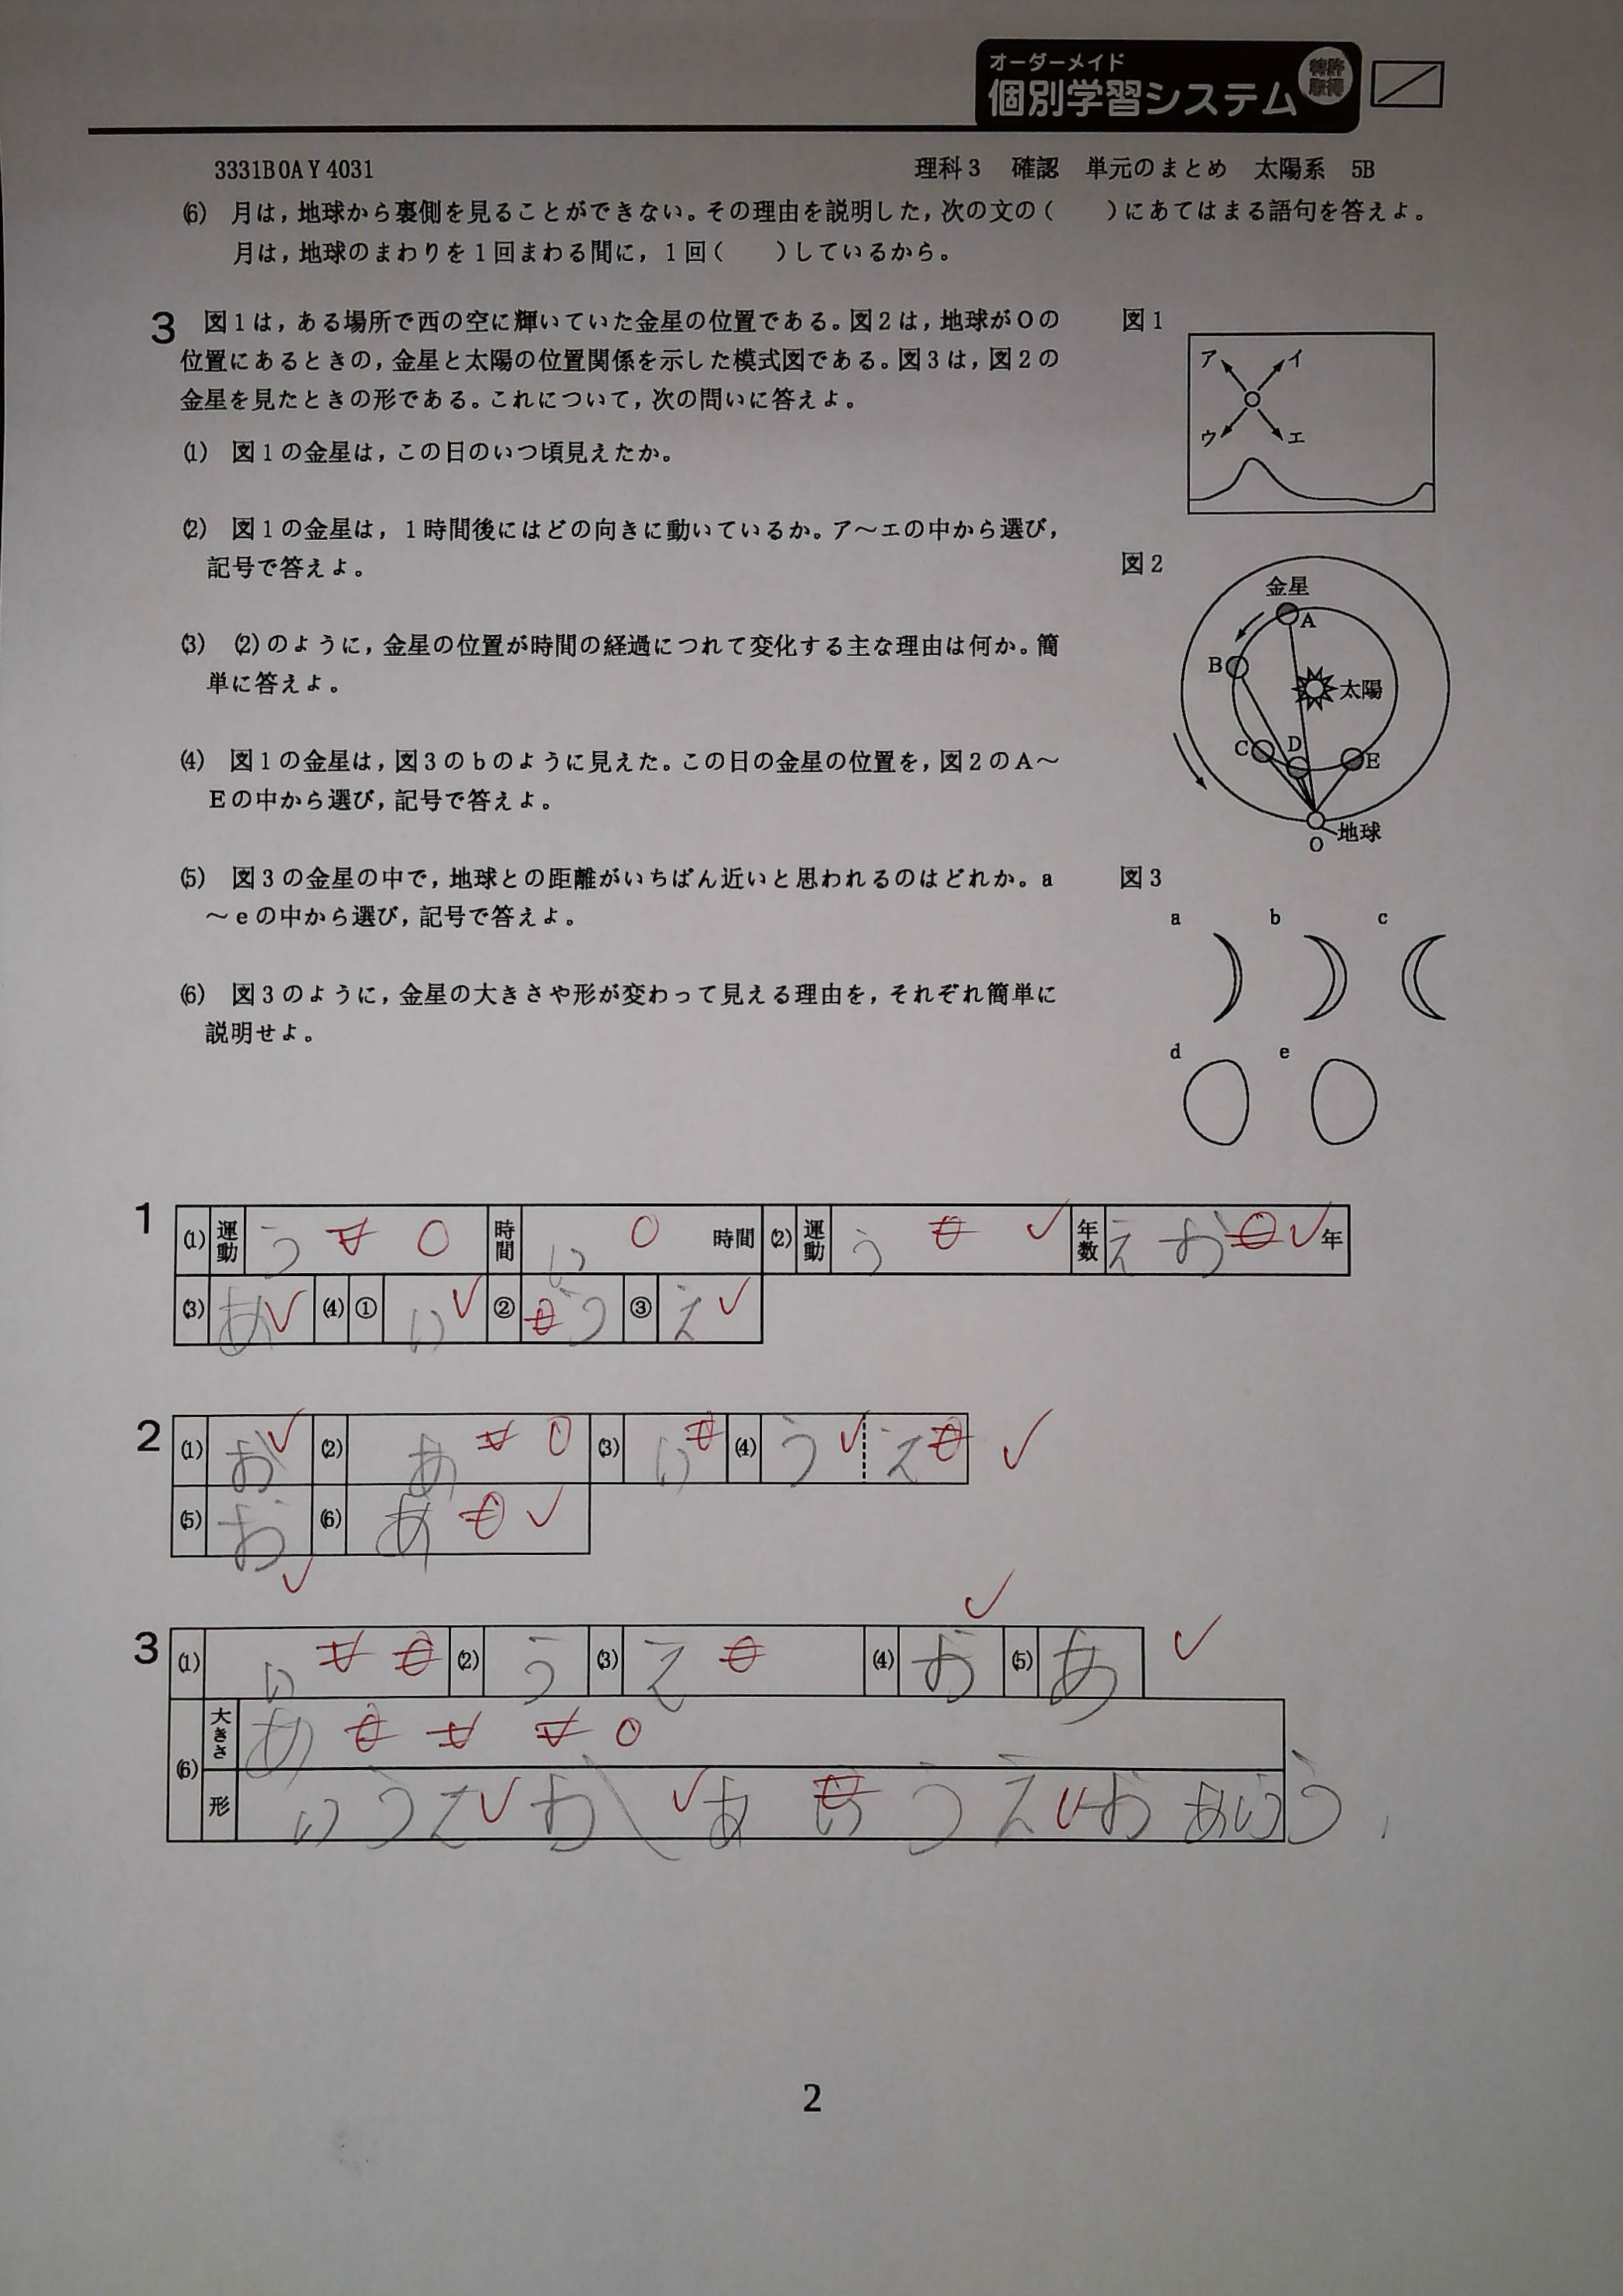 オーダーメイド
個別学習システム
特許
取得
3331B0AY4031
理科3 確認 単元のまとめ 太陽系 5B
(6) 月は，地球から裏側を見ることができない。その理由を説明した，次の文の（　　）にあてはまる語句を答えよ。
月は，地球のまわりを1回まわる間に，1回（　　）しているから。
3 図1は，ある場所で西の空に輝いていた金星の位置である。図2は，地球がOの
位置にあるときの，金星と太陽の位置関係を示した模式図である。図3は，図2の
金星を見たときの形である。これについて，次の問いに答えよ。
(1) 図1の金星は，この日のいつ頃見えたか。
(2) 図1の金星は，1時間後にはどの向きに動いているか。ア～エの中から選び，
記号で答えよ。
(3) (2)のように，金星の位置が時間の経過につれて変化する主な理由は何か。簡
単に答えよ。
(4) 図1の金星は，図3のbのように見えた。この日の金星の位置を，図2のA～
Eの中から選び，記号で答えよ。
(5) 図3の金星の中で，地球との距離がいちばん近いと思われるのはどれか。a
～eの中から選び，記号で答えよ。
(6) 図3のように，金星の大きさや形が変わって見える理由を，それぞれ簡単に
説明せよ。
図1
ア イ
ウ エ
図2
金星
A
B
太陽
C D E
地球
O
図3
a b c
d e
1
(1) 運動 う 時間 い 時間 (2) 運動 う 年数 え お 年
(3) あ (4) ① い ② う ③ え
2
(1) お (2) あ (3) い (4) う え
(5) お (6) あ
3
(1) い (2) う (3) え (4) お (5) あ
(6) 大きさ あ
形 い う え お あ い う え お あ い う
2